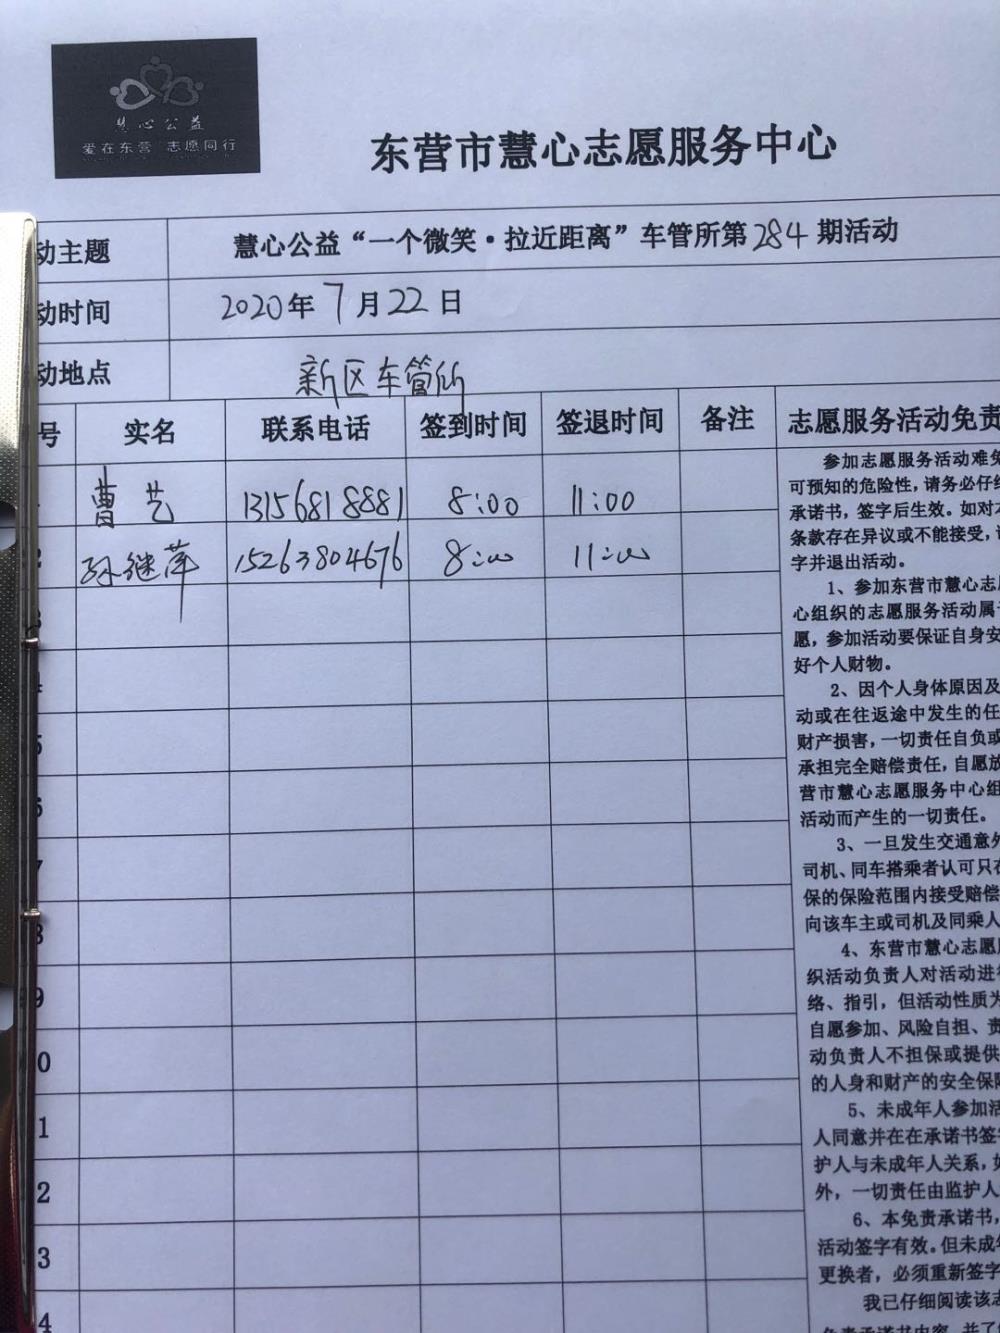 慧心公益
爱在东营 志愿同行
东营市慧心志愿服务中心
动主题
慧心公益“一个微笑·拉近距离”车管所第284期活动
动时间
2020年7月22日
动地点
新区车管所
号 实名 联系电话 签到时间 签退时间 备注 志愿服务活动免责
曹艺 13156818881 8:00 11:00
2 孙继萍 15263804676 8:00 11:00
3
4
5
6
7
8
9
0
1
2
3
4
参加志愿服务活动难免
可预知的危险性，请务必仔细
承诺书，签字后生效。如对本
条款存在异议或不能接受，
字并退出活动。
1、参加东营市慧心志愿
心组织的志愿服务活动属
愿，参加活动要保证自身安
好个人财物。
2、因个人身体原因及
动或在往返途中发生的任
财产损害，一切责任自负或
承担完全赔偿责任，自愿放
营市慧心志愿服务中心组
活动而产生的一切责任。
3、一旦发生交通意外
司机、同车搭乘者认可只在
保的保险范围内接受赔偿
向该车主或司机及同乘人
4、东营市慧心志愿
织活动负责人对活动进行
络、指引，但活动性质为
自愿参加、风险自担、责
动负责人不担保或提供
的人身和财产的安全保障
5、未成年人参加活
人同意并在在承诺书签字
护人与未成年人关系，如
外，一切责任由监护人
6、本免责承诺书，
活动签字有效。但未成年
更换者，必须重新签字
我已仔细阅读该志
免责承诺书内容，并了